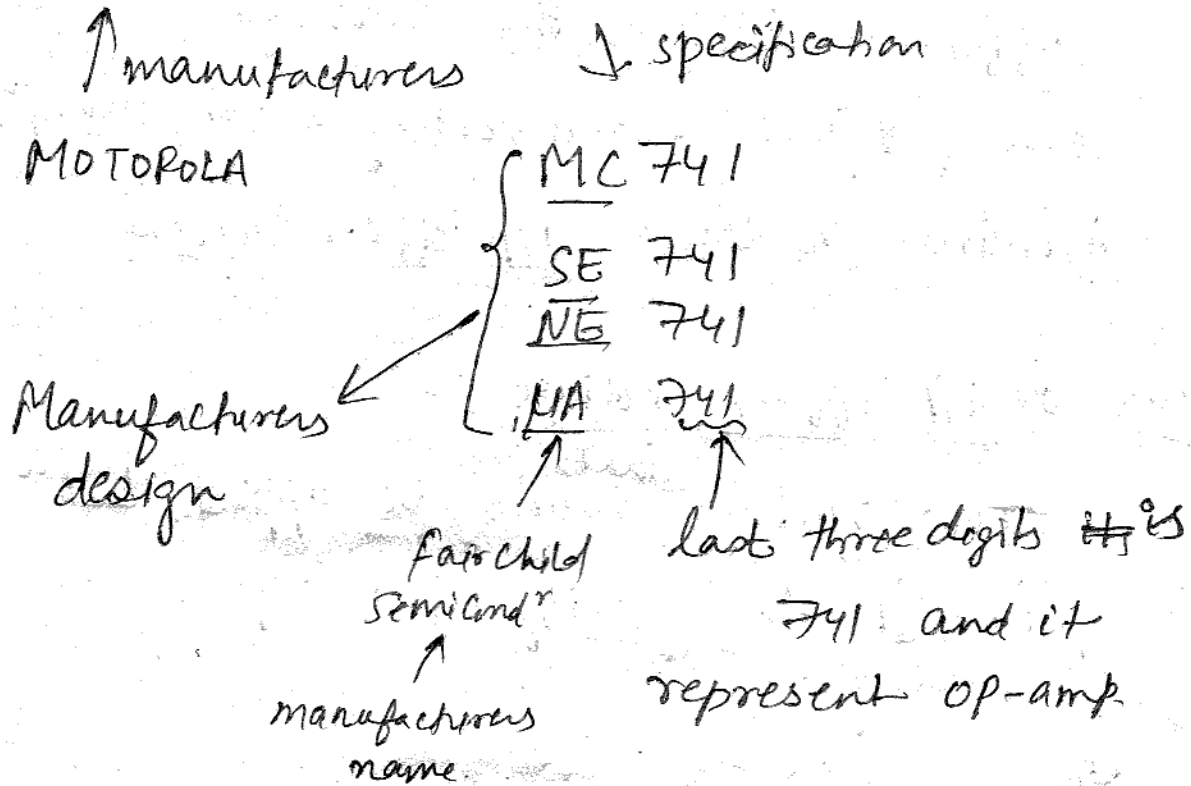 ↑ manufacturers ↓ specification
MOTOROLA MC 741
SE 741
NE 741
Manufacturers
design
μA 741
fairchild
semicondr
manufacturers
name.
last three digits its is
741 and it
represent OP-amp.